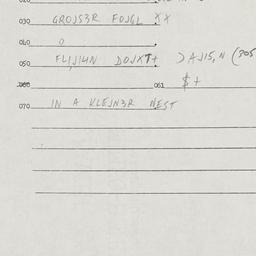 030 GROJSER FOJGL XX
040 O
050 FLIJIHN DOJXT+ DAJIS,N (305
060 061 $+
070 IN A KLEJN3R NEST